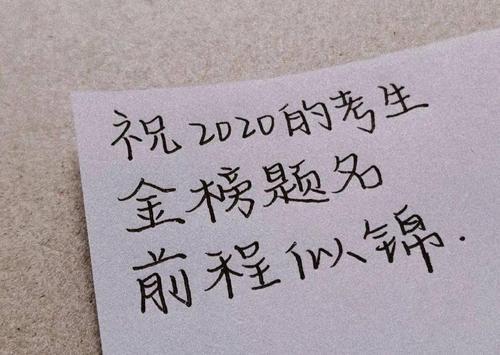 祝2020的考生
金榜题名
前程似锦.